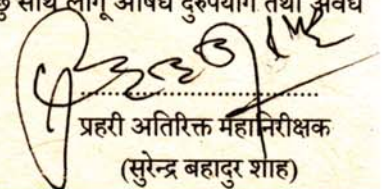 साथै लागू औषध दुरुपयोग तथा अवैध
प्रहरी अतिरिक्त महानिरीक्षक
(सुरेन्द्र बहादुर शाह)